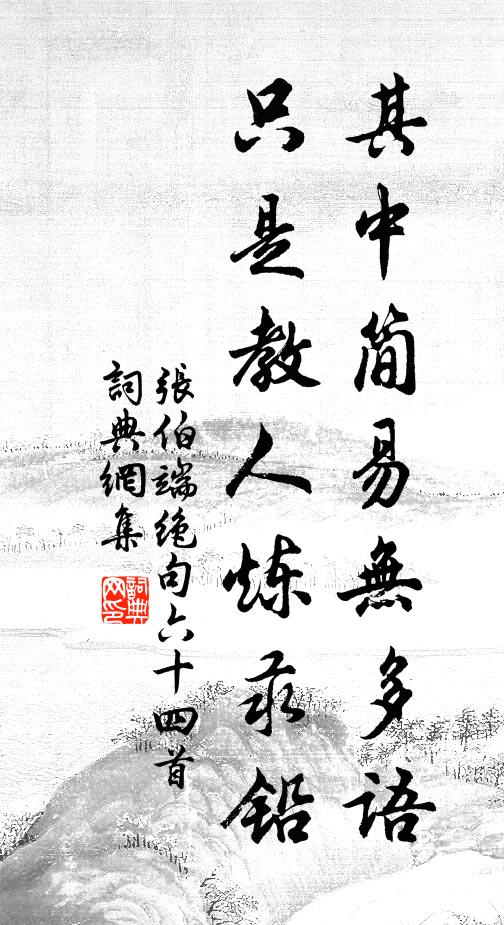 其中简易無多語
只是教人炼汞鉛
張伯端絶句六十四首
詞典網集
詞典网印